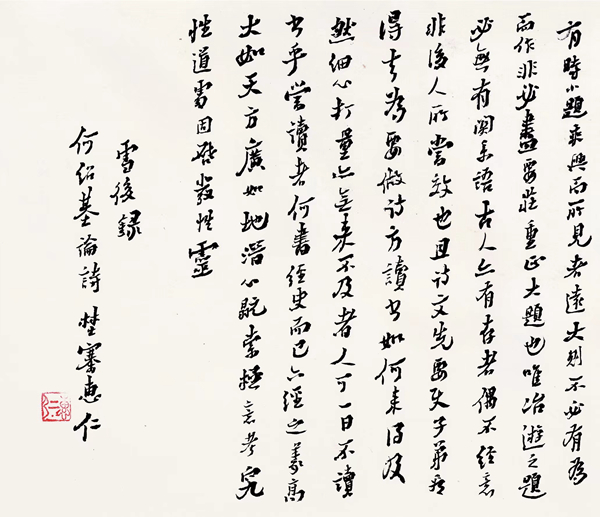 有時小題乘興而所見者遠大則不必有為
而作非必盡要莊重正大題也唯冶遊之題
必無有關系語古人亦有存者偶不經意
非後人所當效也且詩文先要子弟看
得去為要做詩方讀書如何來得及
然細心打量亦無來不及者人可一日不讀
書乎當讀者何書經史而已六經之義高
大如天方廣如地潛心玩索極意考究
性道處固啟發性靈
雪後錄
何紹基論詩 審惠仁